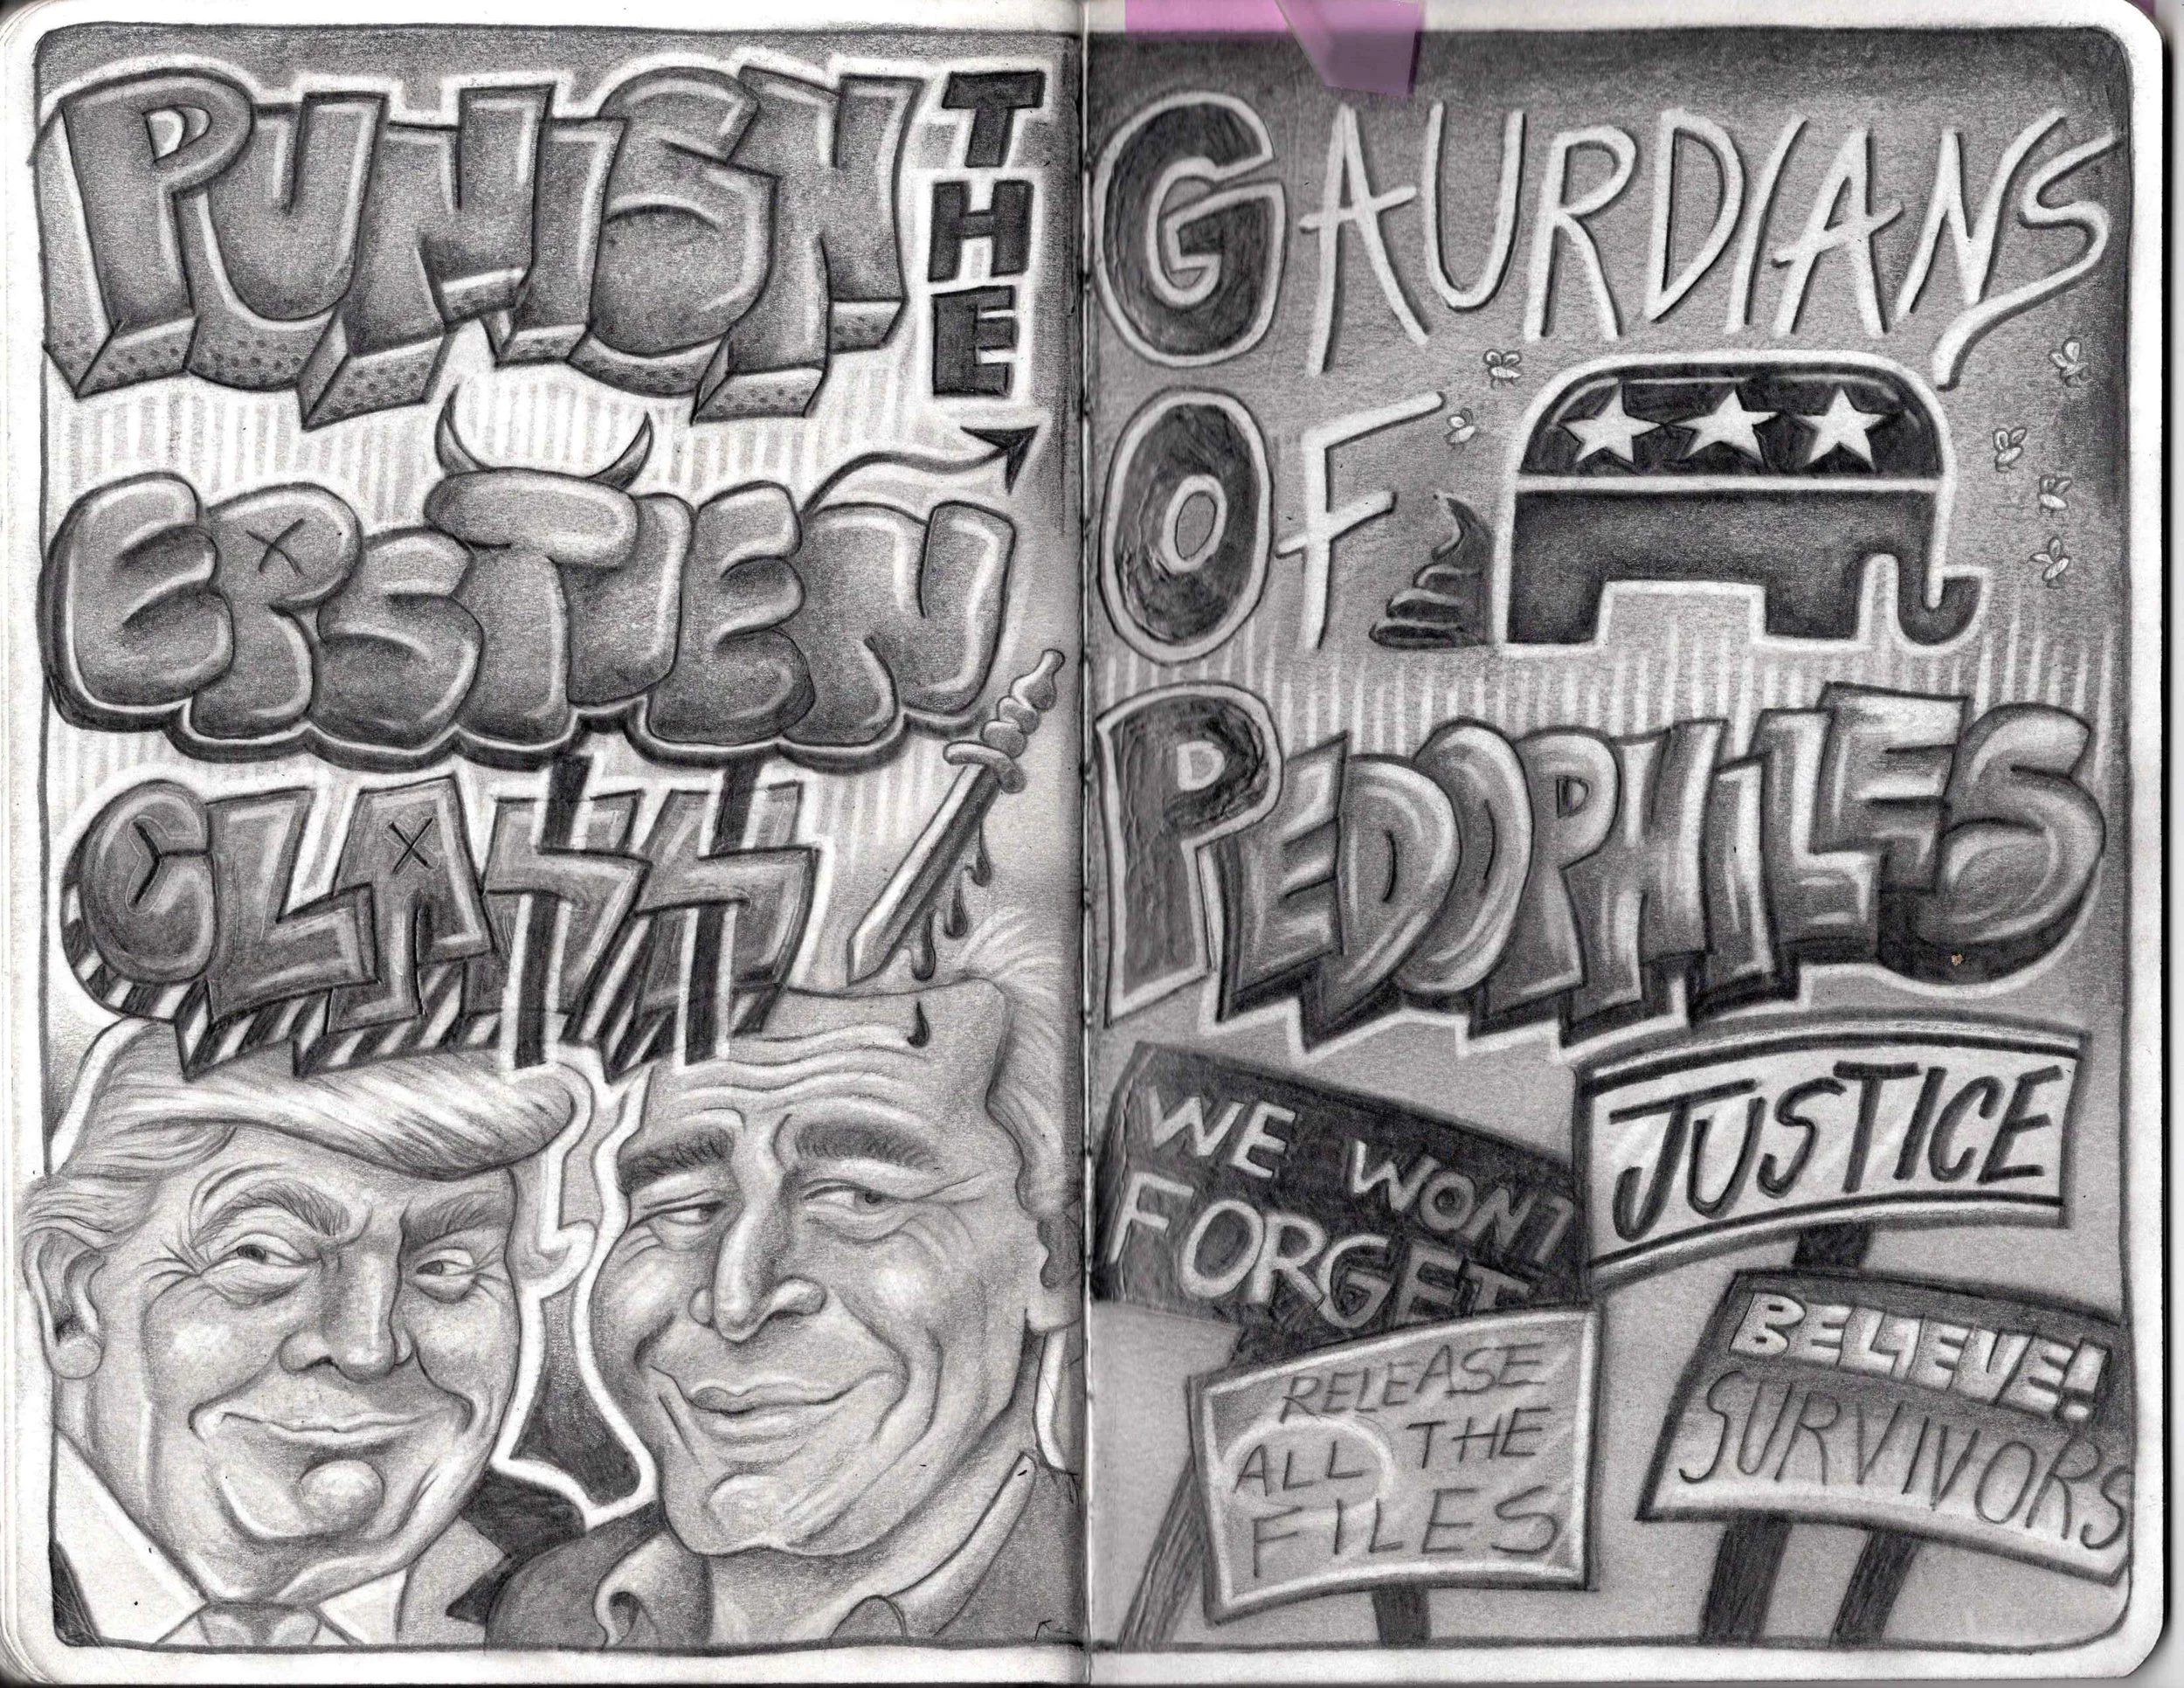 PUNISH
THE
EPSTIEN
CLA$$
GAURDIANS
OF
PEDOPHILES
WE WONT
FORGET
JUSTICE
RELEASE
ALL THE
FILES
BELIEVE!
SURVIVORS